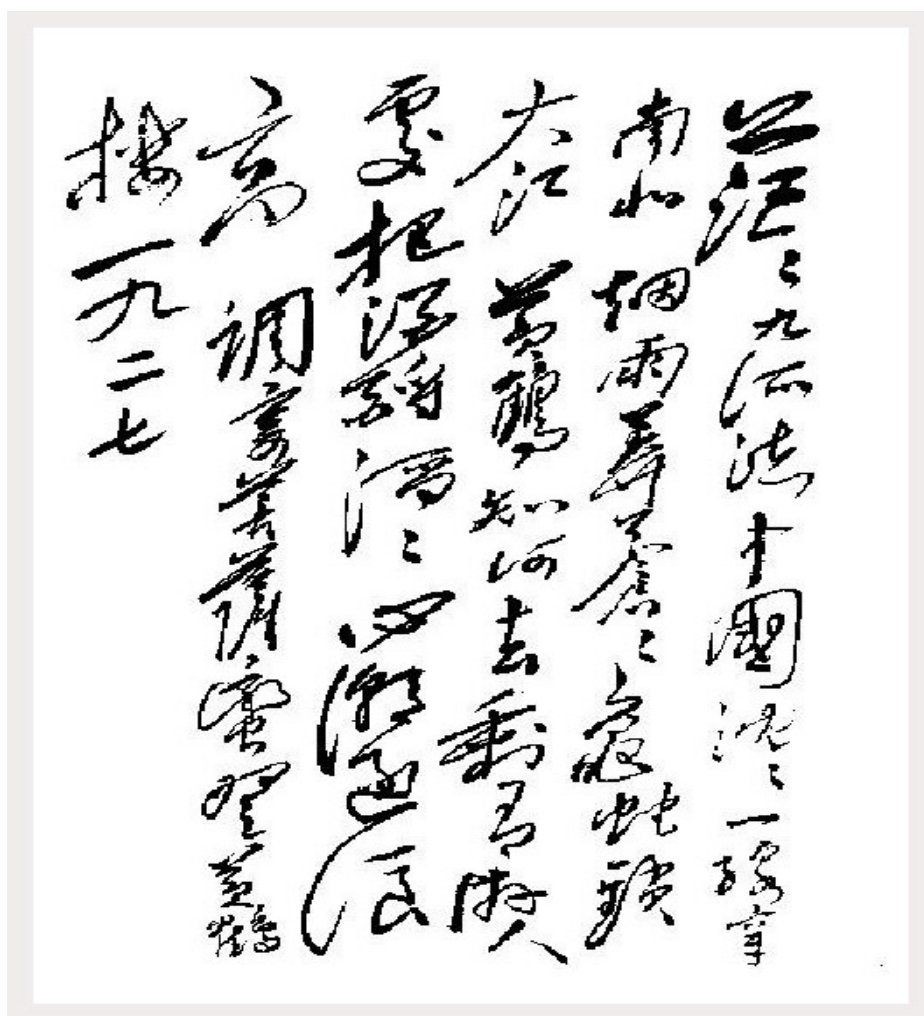 茫〻九派流中國沉〻一線穿
南北 烟雨莽蒼〻龜蛇鎖
大江 黃鶴知何去剩有游人
處 把酒酹滔〻心潮逐浪
高 調寄菩薩蠻登黃鶴
樓 一九二七